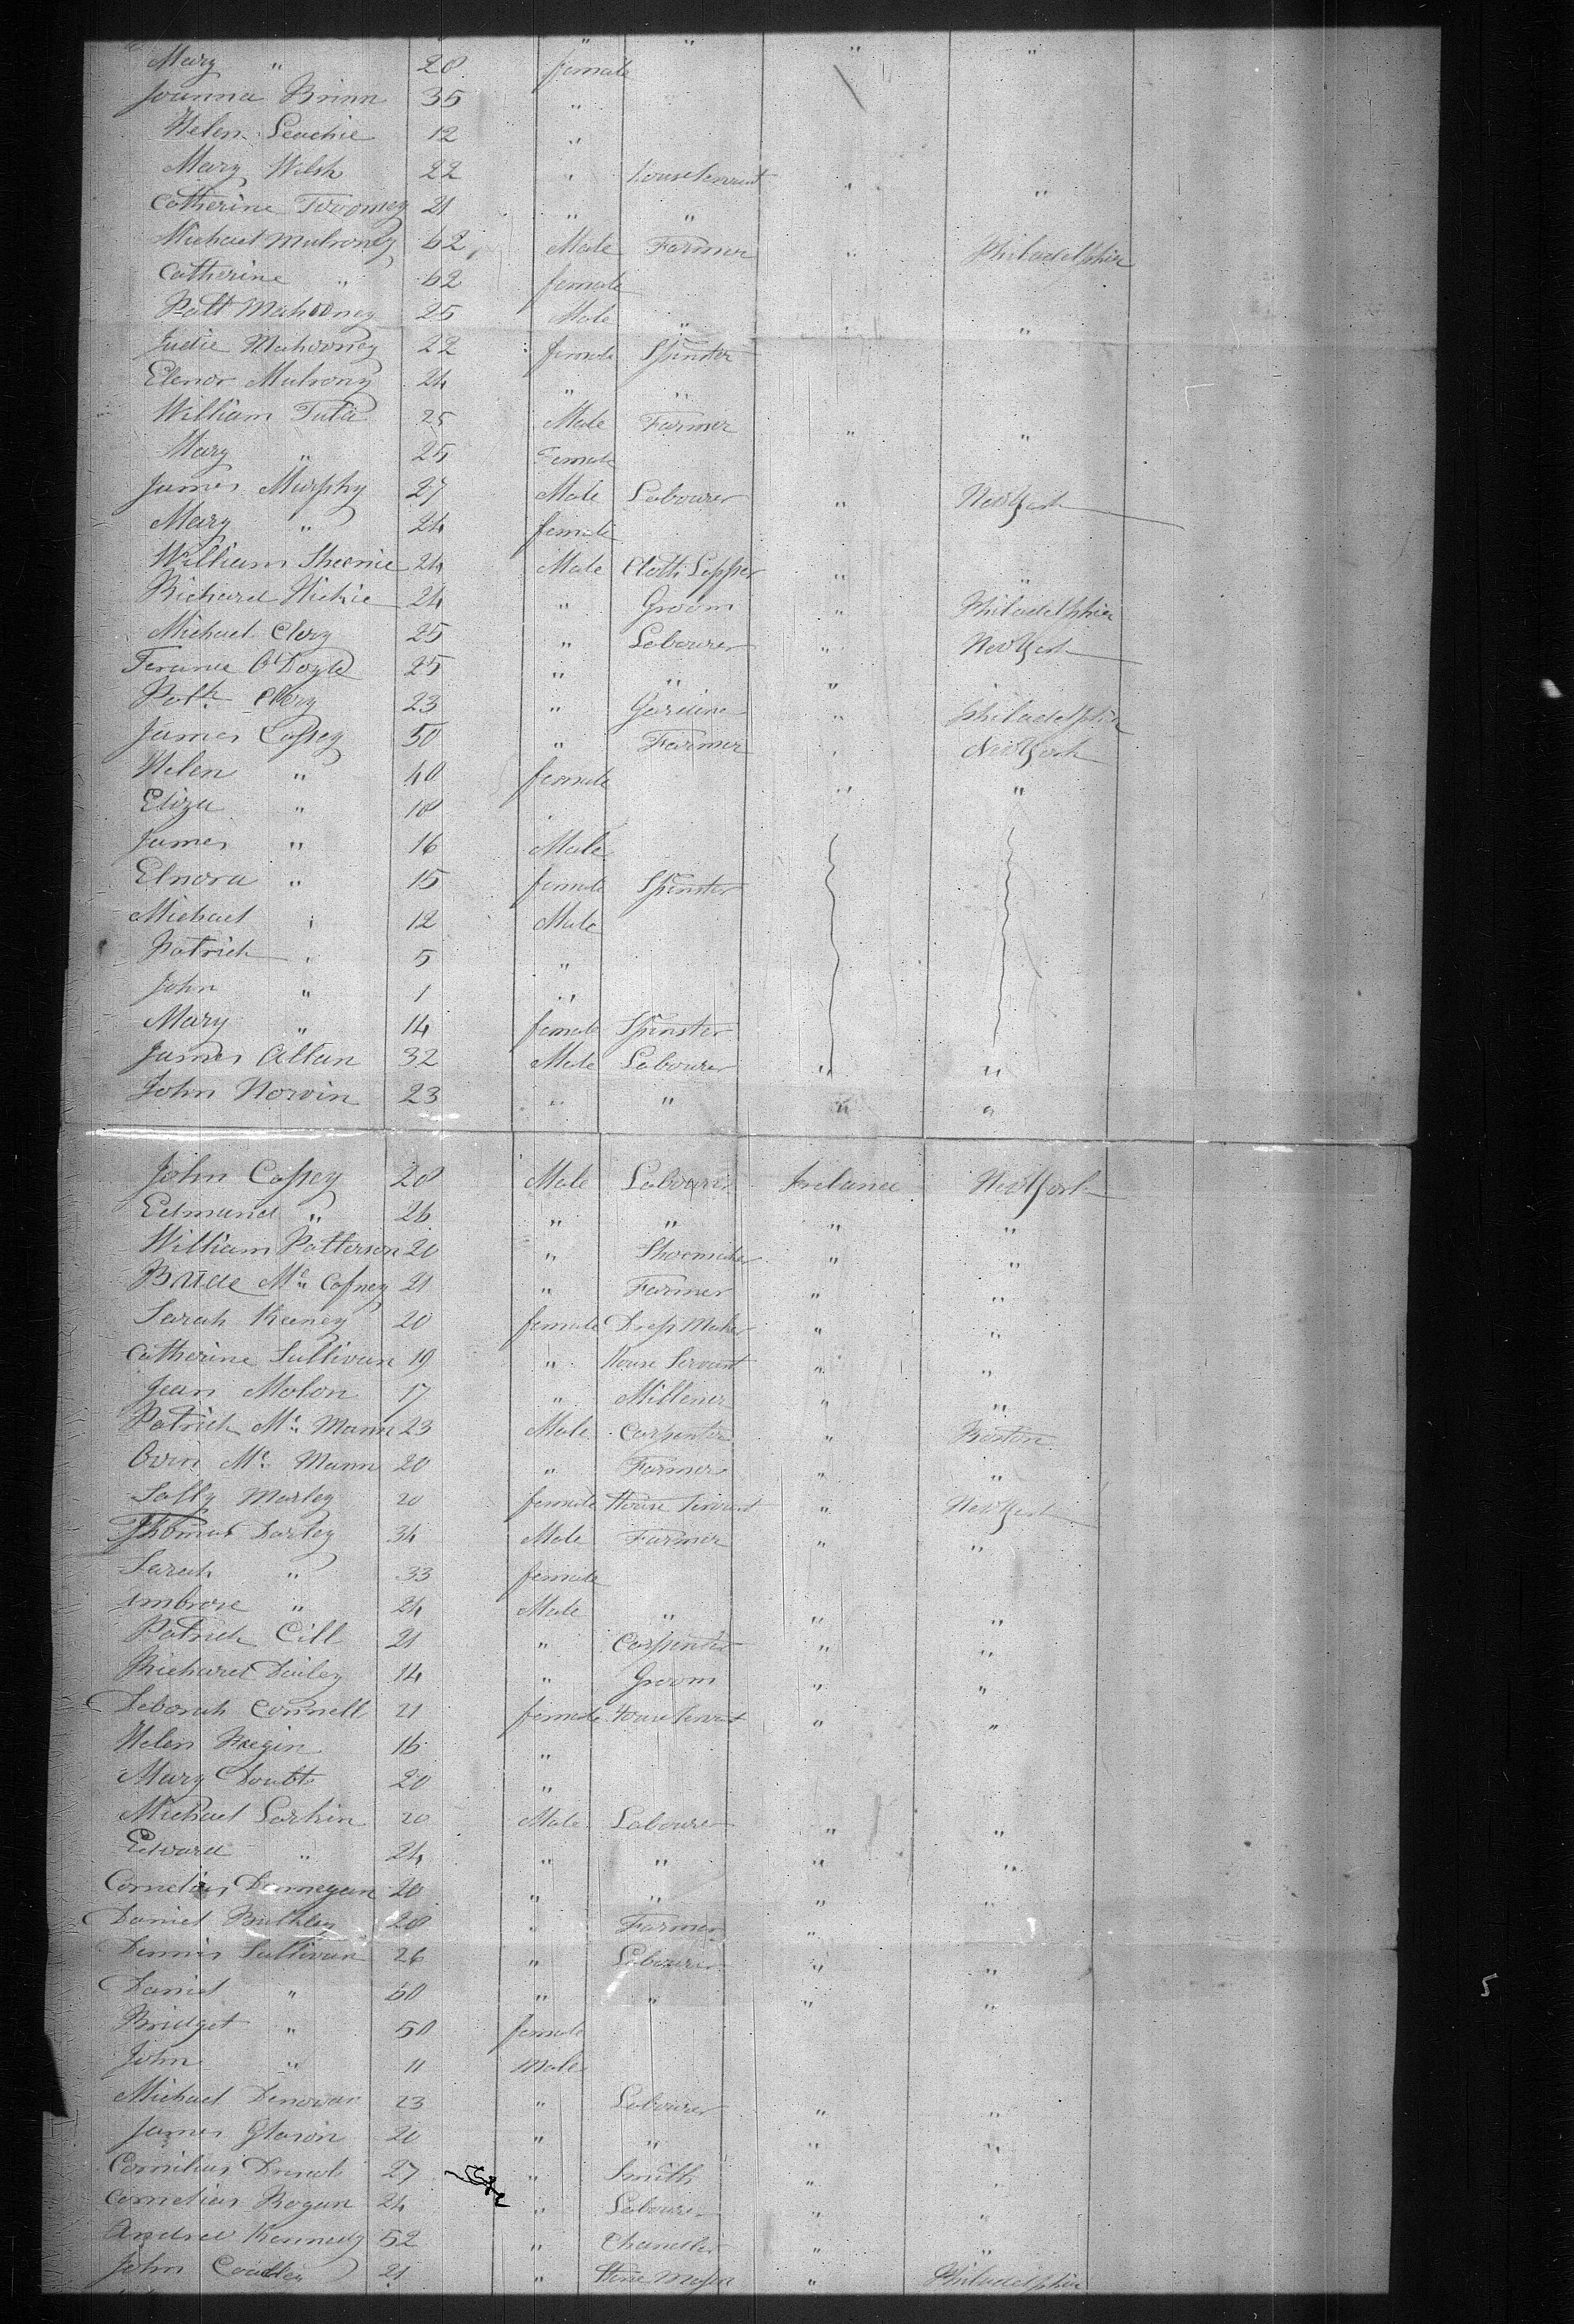 " " " "
Mary " 28 female
Joanna Brinn 35 "
Helen Leachie 12 "
Mary Welsh 22 " house servant " "
Catherine Twomey 21 " "
Michael Mulroney 62 Male Farmer " Philadelphia
Catherine " 62 female
Patt Mahooney 25 Male " " "
Judie Mahooney 22 female Spinster
Elenor Mulrony 24 " "
William Tula 25 Male Farmer " "
Mary " 25 Female
James Murphy 27 Male Labourer " New York
Mary " 24 female
William Sheenie 24 Male Cloth Lapper " "
Richard Hickie 24 " Groom " Philadelphia
Michael Clery 25 " Labourer " New York
Terance O'Doyle 25 " " " "
Patk Clery 23 " Gardine " Philadelphia
James Cassey 50 " Farmer " New York
Helen " 40 female " "
Eliza " 18 "
James " 16 Male
Elnora " 15 female Spinster
Michael " 12 Male
Patrick " 5 "
John " 1 "
Mary " 14 female Spinster
James Allan 32 Male Labourer " "
John Norvin 23 " " " "
John Cassey 28 Male Labourer Ireland New York
Edmund " 26 " " " "
William Patterson 20 " Shoemaker " "
Mc Cafney 21 " Farmer " "
Sarah Keeney 20 female Dress Maker " "
Catherine Sullivan 19 " House Servant " "
Jean Molon 17 " Millener " "
Patrick Mc Mann 23 Male Carpenter " Boston
Owin Mc Mann 20 " Farmer " "
Sally Marley 20 female House Servant " New York
Thomas Darley 34 Male Farmer " "
Sarah " 33 female
Ambrose " 24 Male " " "
Patrick Cill 21 " Carpenter " "
Richard Dailey 14 " Groom " "
Deborah Connell 21 female House Servant " "
Helen Regin 16 "
Mary Doubt 20 "
Michael Larkin 20 Male Labourer " "
Edward " 24 " " " "
Cornelius Dennegan 20 " " " "
Daniel Bulkley 28 " Farmer "
Dennis Sullivan 26 " Labourer " "
Daniel " 60 " " " "
Bridget " 50 female
John " 11 Male
Michael Denovan 23 " Labourer " "
James Glason 20 " " " "
Cornilius 27 " Smith " "
Cornelius Rogan 24 " Labourer " "
Andrew Kennedy 52 " Chandler " "
John 21 " Stone Mason " Philadelphia
5